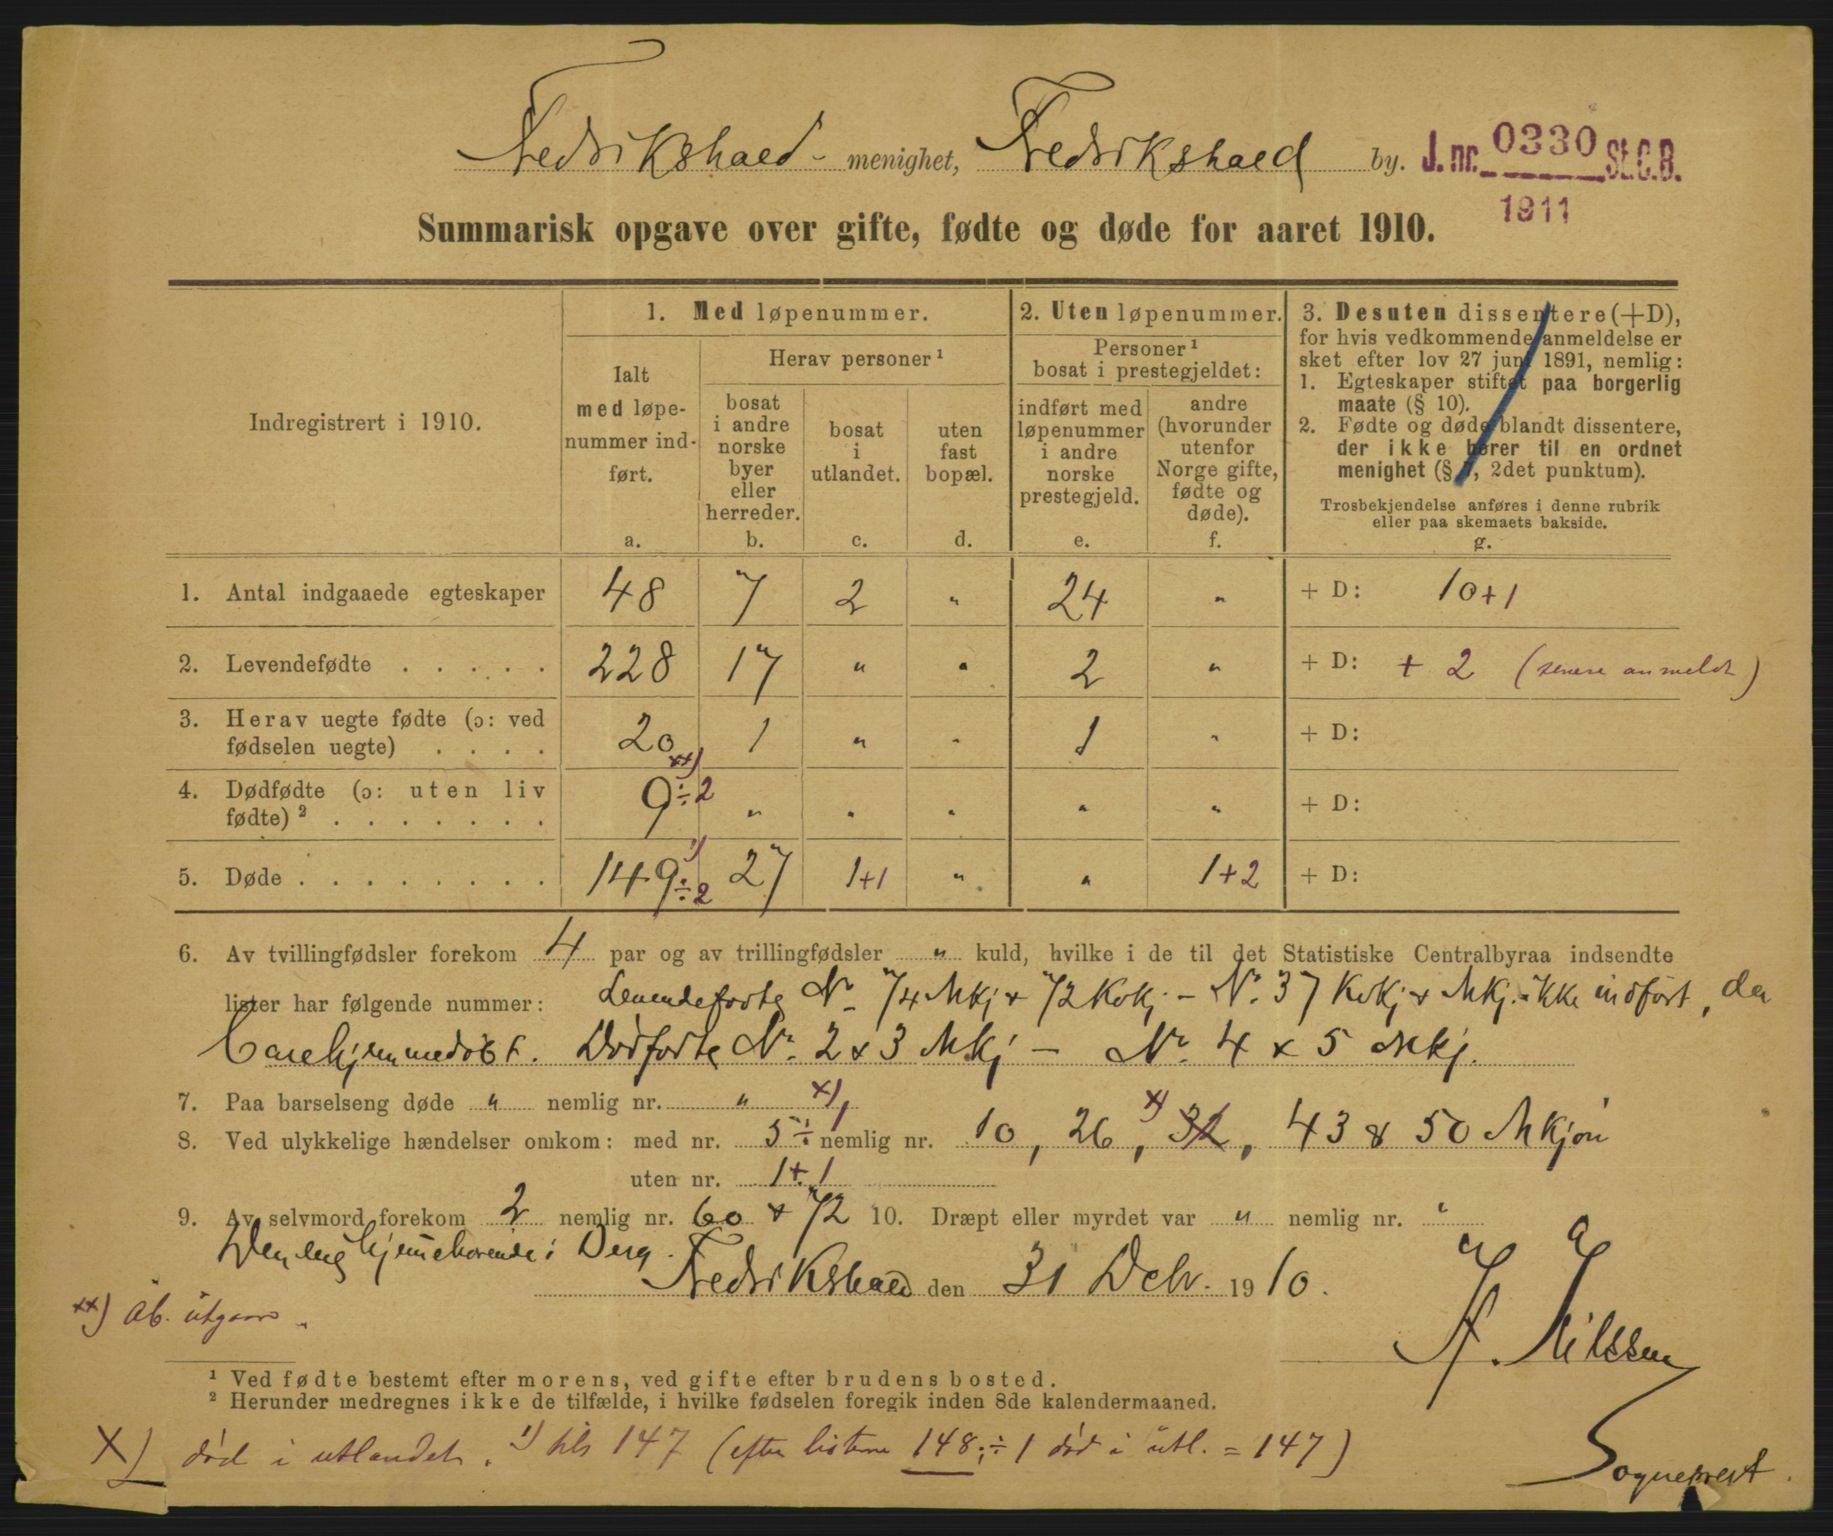 Fredrikshald menighet, Fredrikshald by. J. nr. 0330 St.C.B.
1911
Summarisk opgave over gifte, fødte og døde for aaret 1910.
Indregistrert i 1910.
1. Med løpenummer.
Ialt
med løpe-
nummer ind-
ført.
a.
Herav personer ¹
bosat
i andre
norske
byer
eller
herreder.
b.
bosat
i
utlandet.
c.
uten
fast
bopæl.
d.
2. Uten løpenummer.
Personer ¹
bosat i prestegjeldet:
indført med
løpenummer
i andre
norske
prestegjeld.
e.
andre
(hvorunder
utenfor
Norge gifte,
fødte og
døde).
f.
3. Desuten dissentere (+D),
for hvis vedkommende anmeldelse er
sket efter lov 27 juni 1891, nemlig:
1. Egteskaper stiftet paa borgerlig
maate (§ 10).
2. Fødte og døde blandt dissentere,
der ikke hører til en ordnet
menighet (§ 7, 2det punktum).
Trosbekjendelse anføres i denne rubrik
eller paa skemaets bakside.
g.
1. Antal indgaaede egteskaper 48 7 2 " 24 " + D: 10+1
2. Levendefødte . . . . . 228 17 " " 2 " + D: + 2 (senere anmeldt)
3. Herav uegte fødte (ɔ: ved
fødselen uegte) . . . . 20 1 " " 1 " + D:
4. Dødfødte (ɔ: uten liv
fødte) ² . . . . . . . 9 ××) ÷2 " " " " " + D:
5. Døde . . . . . . . . 149 ¹) ÷2 27 1+1 " " 1+2 + D:
6. Av tvillingfødsler forekom 4 par og av trillingfødsler " kuld, hvilke i de til det Statistiske Centralbyraa indsendte
lister har følgende nummer: Levendefødte No 74 Mkj & 72 Kvkj – No 37 Kvkj & Mkj. ikke indført, da
Dødfødte No. 2 & 3 Mkj – No. 4 & 5 Mkj.
7. Paa barselseng døde " nemlig nr. " ×)
8. Ved ulykkelige hændelser omkom: med nr. 5 ÷ 1 nemlig nr. 10, 26, ×) 32, 43 & 50 Mkjøn
uten nr. 1+1
9. Av selvmord forekom 2 nemlig nr. 60 & 72 10. Dræpt eller myrdet var " nemlig nr. "
hjemehørende i Berg.
Fredrikshald den 31 Debr. 1910.
××) Ab. utgaar.
A. Nilssen
¹ Ved fødte bestemt efter morens, ved gifte efter brudens bosted.
² Herunder medregnes ikke de tilfælde, i hvilke fødselen foregik inden 8de kalendermaaned.
×) død i utlandet. ¹) tils 147 (efter listerne 148 ÷ 1 død i utl. = 147)
Sogneprest.